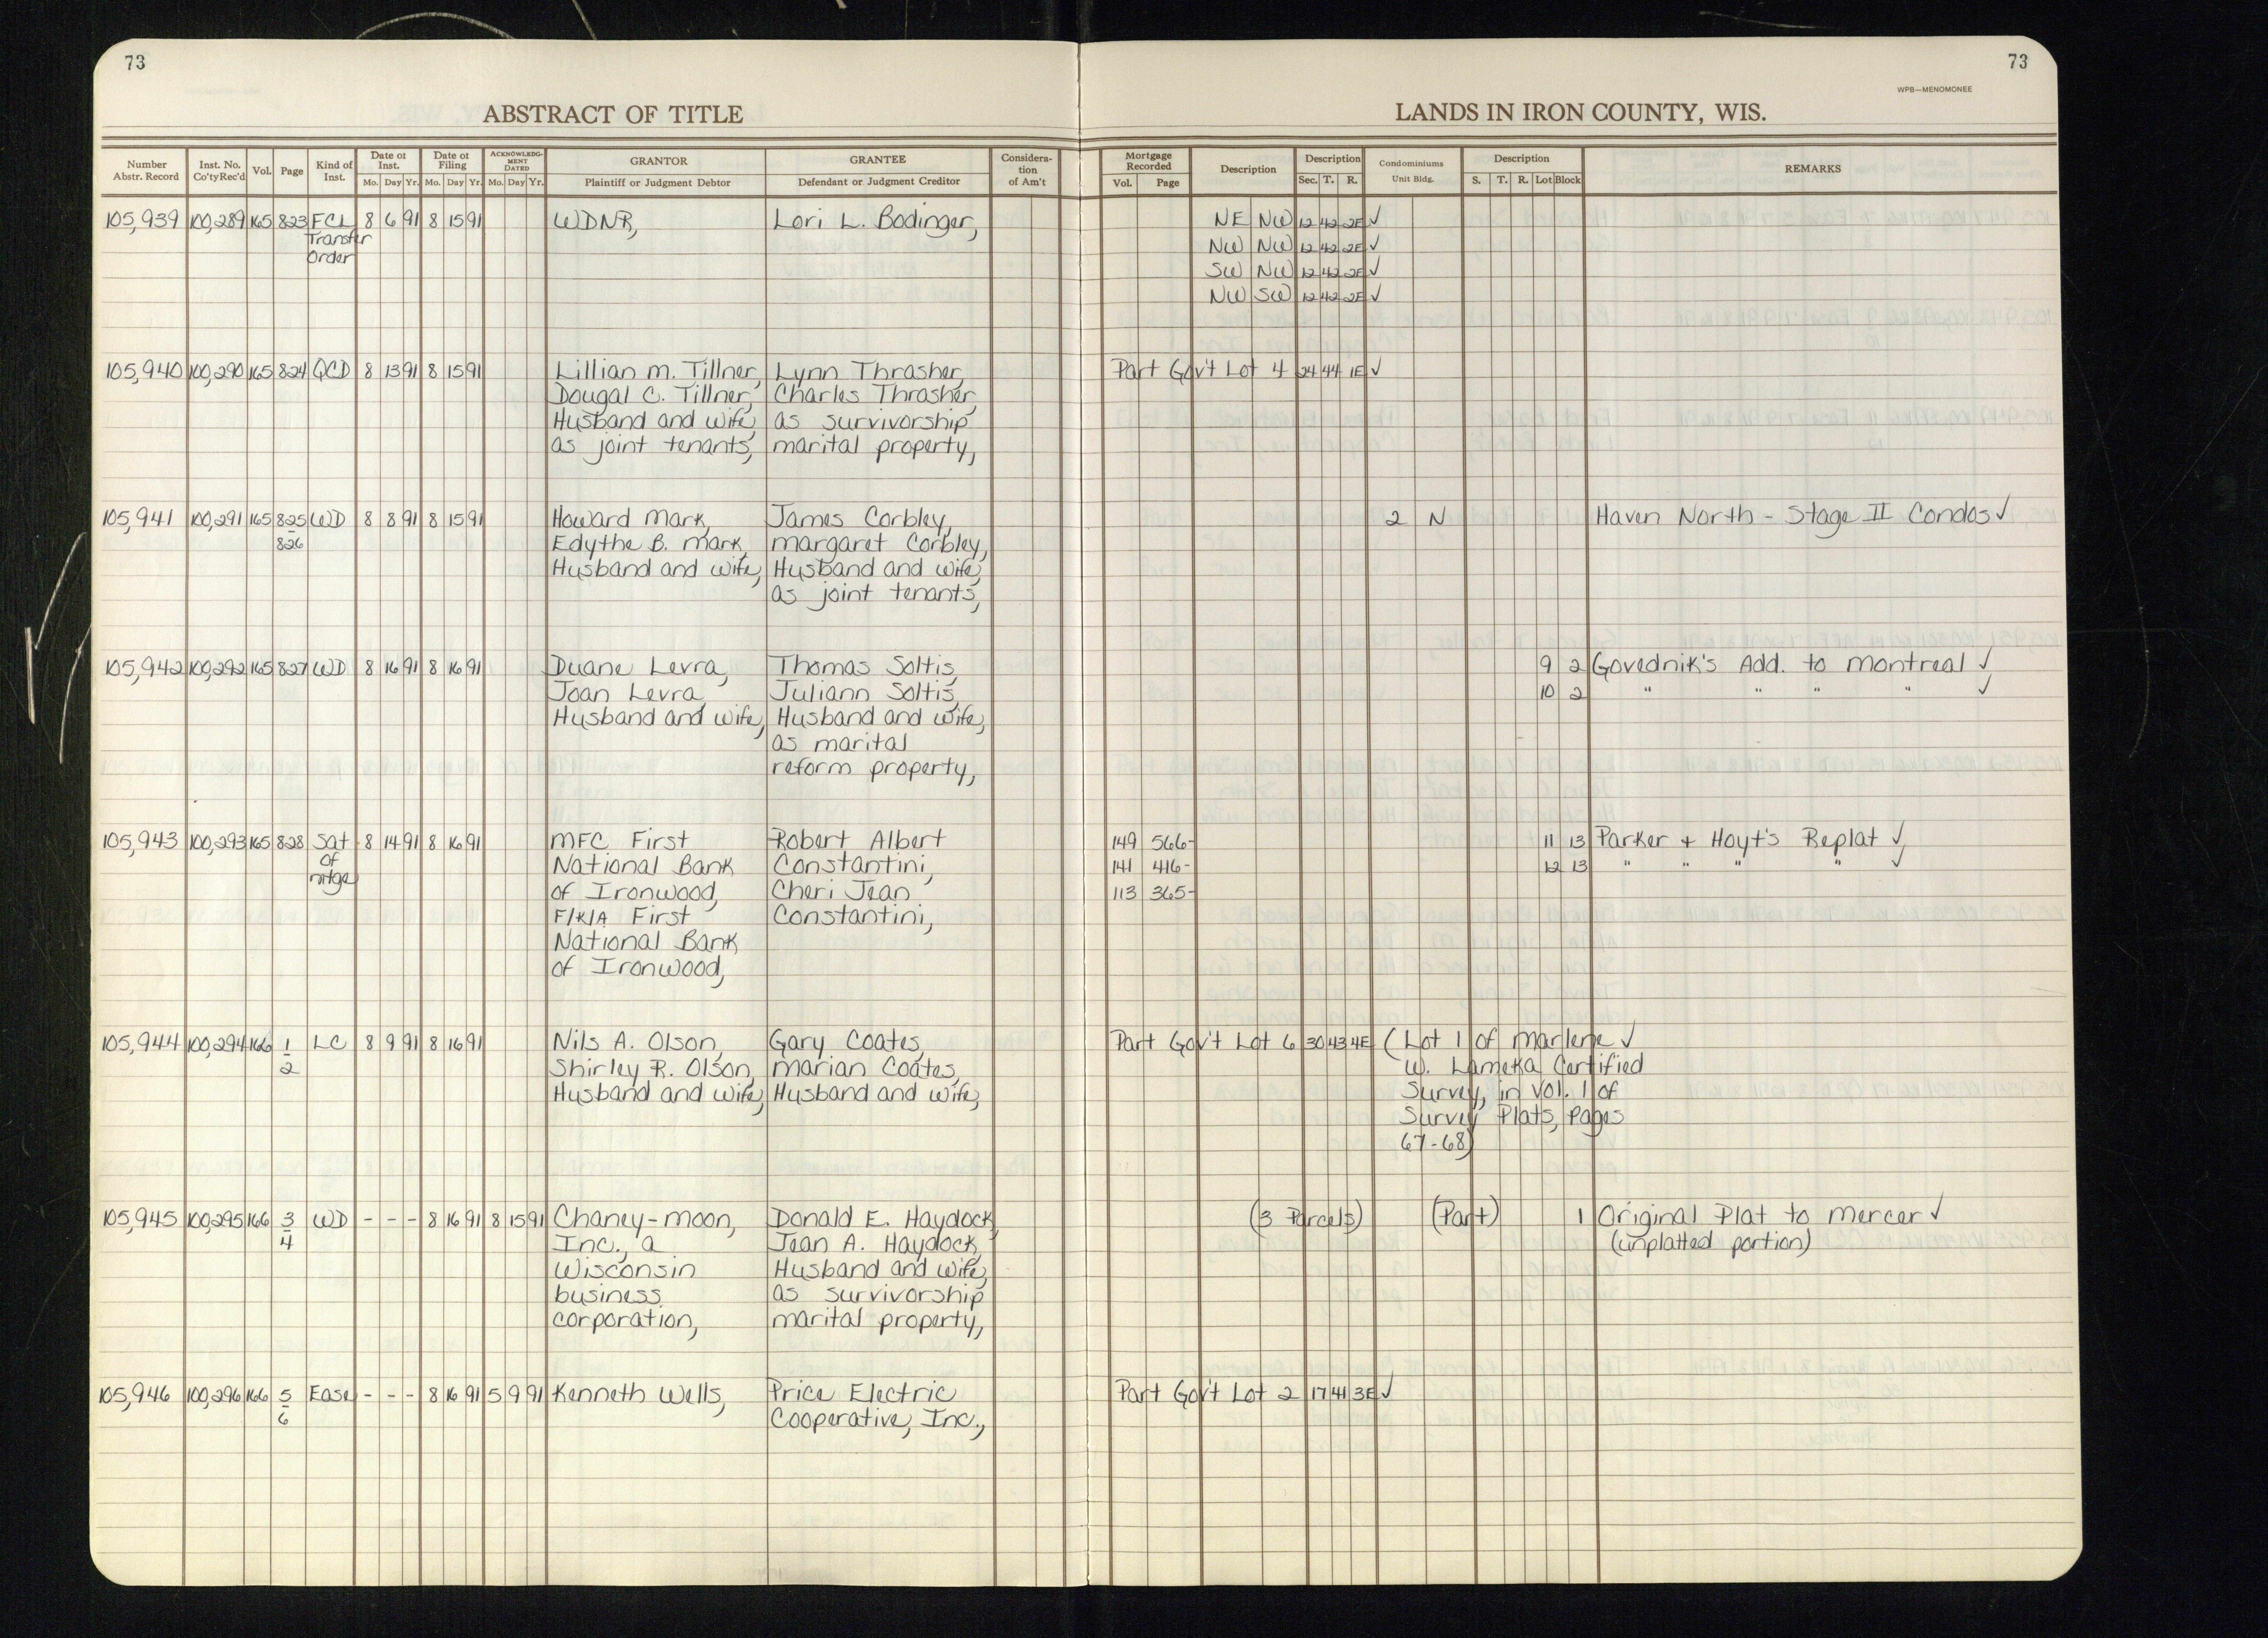 73
73
WPB—MENOMONEE
ABSTRACT OF TITLE
LANDS IN IRON COUNTY, WIS.
Number Abstr. Record Inst. No. Co'ty Rec'd Vol. Page Kind of Inst. Date of Inst. Mo. Day Yr. Date of Filing Mo. Day Yr. ACKNOWLEDGMENT DATED Mo. Day Yr. GRANTOR Plaintiff or Judgment Debtor GRANTEE Defendant or Judgment Creditor Consideration of Am't Mortgage Recorded Vol. Page Description Description Sec. T. R. Condominiums Unit Bldg. Description S. T. R. Lot Block REMARKS
105,939 100,289 165 823 FCL 8 6 91 8 15 91 WDNR, Lori L. Bodinger, NE NW 12 42 2E ✓
Transfer NW NW 12 42 2E ✓
Order SW NW 12 42 2E ✓
NW SW 12 42 2E ✓
105,940 100,290 165 824 QCD 8 13 91 8 15 91 Lillian M. Tillner, Lynn Thrasher, Part Gov't Lot 4 24 44 1E ✓
Dougal C. Tillner, Charles Thrasher,
Husband and wife, as survivorship
as joint tenants, marital property,
105,941 100,291 165 825 WD 8 8 91 8 15 91 Howard Mark, James Corbley, 2 N Haven North - Stage II Condos ✓
826 Edythe B. Mark, Margaret Corbley,
Husband and wife, Husband and wife,
as joint tenants,
105,942 100,292 165 827 WD 8 16 91 8 16 91 Duane Levra, Thomas Soltis, 9 2 Govednik's Add. to Montreal ✓
Joan Levra, Juliann Soltis, 10 2 " " " " ✓
Husband and wife, Husband and wife,
as marital
reform property,
105,943 100,293 165 828 Sat 8 14 91 8 16 91 MFC First Robert Albert 149 566- 11 13 Parker + Hoyt's Replat ✓
of National Bank Constantini, 141 416- 12 13 " " " " ✓
mtge of Ironwood, Cheri Jean 113 365-
F/K/A First Constantini,
National Bank
of Ironwood,
105,944 100,294 166 1 LC 8 9 91 8 16 91 Nils A. Olson, Gary Coates, Part Gov't Lot 6 30 43 4E (Lot 1 of Marlene ✓
2 Shirley R. Olson, Marian Coates, W. Lameka Certified
Husband and wife, Husband and wife, Survey, in Vol. 1 of
Survey Plats, Pages
67-68)
105,945 100,295 166 3 WD - - - 8 16 91 8 15 91 Chaney-Moon, Donald E. Haydock, (3 Parcels) (Part) 1 Original Plat to Mercer ✓
4 Inc., a Jean A. Haydock, (unplatted portion)
Wisconsin Husband and wife,
business as survivorship
corporation, marital property,
105,946 100,296 166 5 Ease - - - 8 16 91 5 9 91 Kenneth Wells, Price Electric Part Gov't Lot 2 17 41 3E ✓
6 Cooperative, Inc.,